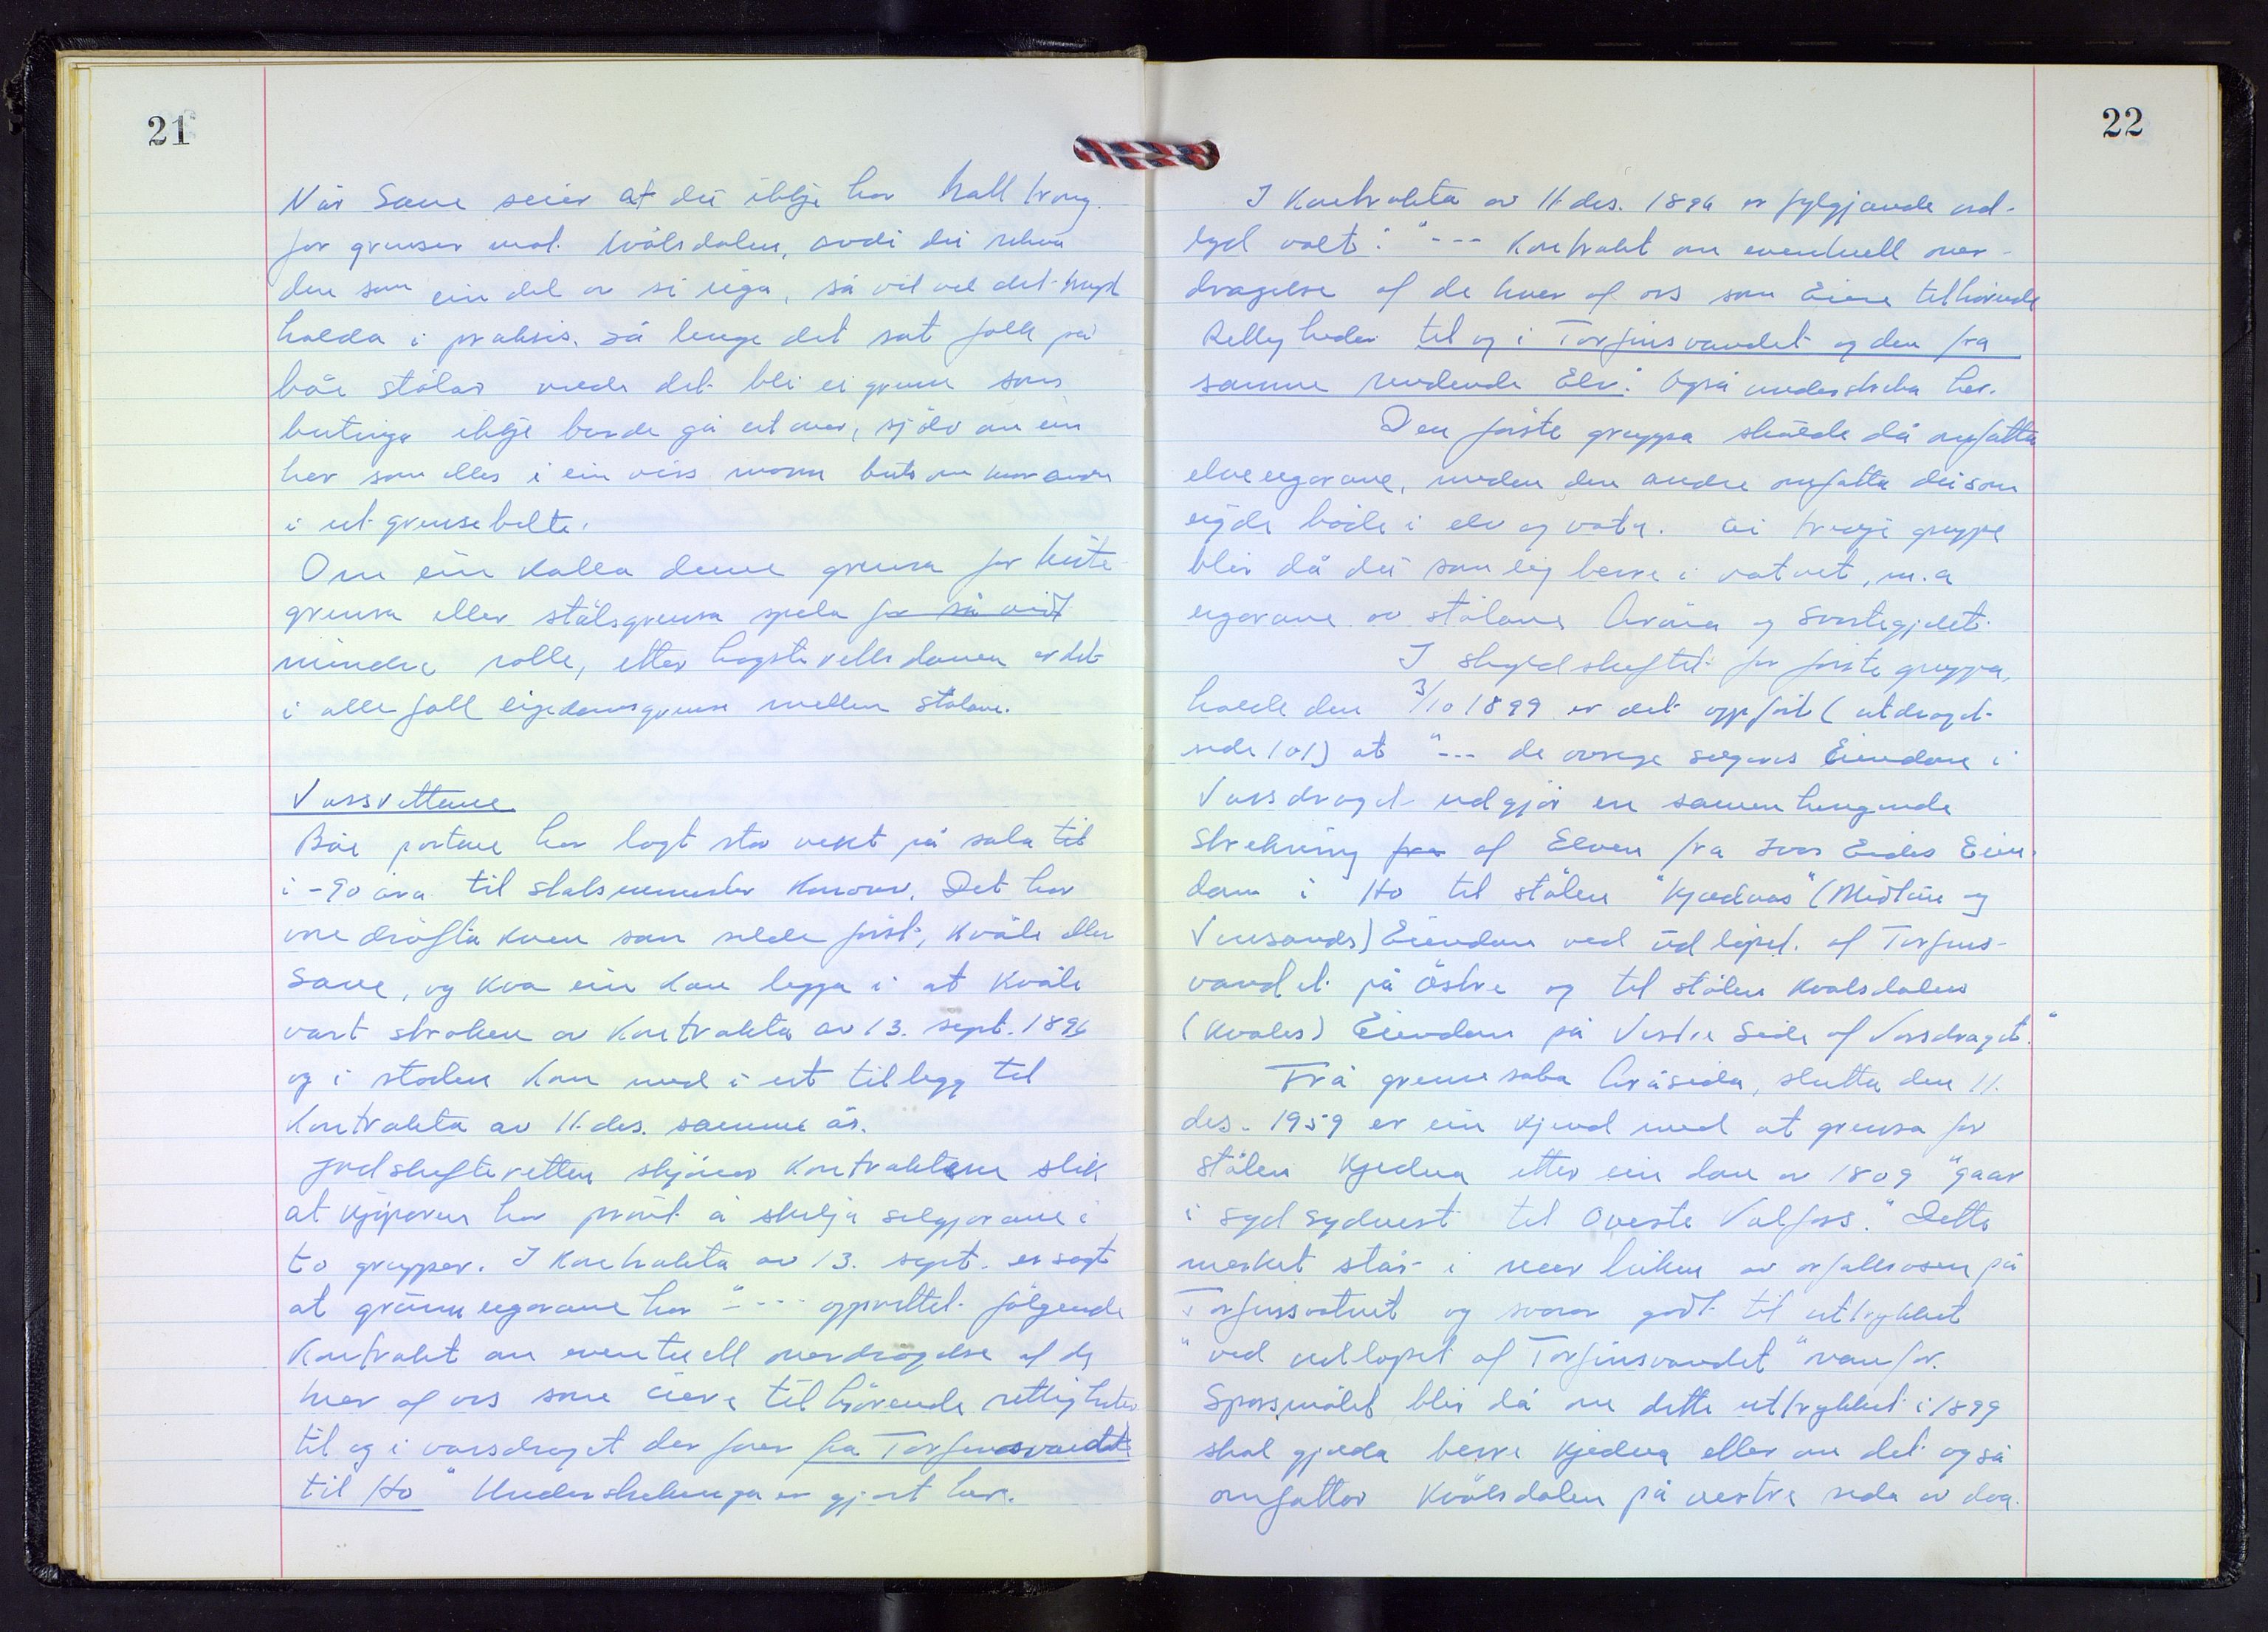 21
Når Save seier at dei ikkje har hatt trong
for grenser mot Kvålsdalen, avdi dei rekna
den som ein del av si eiga, så vil vel det knapt
halda i praksis. Så lenge det sat folk på
båe stølar måtte det bli ei grense som
beitinga ikkje burde gå ut over, sjølv om ein
her som elles i ein viss monn beita om kvarandre
i eit grensebelte.
Om ein kalla denne grensa for beite
grensa eller stølsgrensa spela for så vidt
mindre rolle, etter høgsterettsdomen er det
i alle fall eigedomsgrense mellom stølane.
Vassrettane
Båe partane har lagt stor vekt på sala til
i -90 åra til statsminister Knudsen. Det har
vore drøfta kven som selde først, Kvåle eller
Save, og kva ein kan leggja i at Kvåle
vart stroken av kontrakta av 13. sept. 1896
og i staden kom med i eit tillegg til
kontrakta av 11. des. samme år.
Jordskifteretten skjønar kontraktene slik
at kjøparen har prøvt å skilja seljarane i
to grupper. I kontrakta av 13. sept. er sagt
at grunneigarane har "--- opprettet følgende
Kontrakt om eventuell overdragelse af de
hver af oss som eiere tilhørende rettigheter
til og i vassdraget der fører fra Torfinsvandet
til Ho" Understrekinga er gjort her.
22
I Kontrakta av 11. des. 1896 er fylgjande ord-
lyd valt: "--- Kontrakt om eventuell over-
dragelse af de hver af oss som Eiere tilhørende
Rettigheder til og i Torfinsvandet og den fra
samme rendende Elv." Også understreka her.
Den første gruppa skulde då omfatta
elveeigarane, medan den andre omfatta dei som
eigde både i elv og vatn. Ei tredje gruppe
blir då dei som eig berre i vatnet, m.a
eigarane av stølane Åråsa og Svartegjelet.
I skyldskiftet for første gruppa,
halde den 3/10 1899 er det oppført (utdraget
side 101) at "--- de øvrige sælgeres Eiendom i
Vassdraget udgjør en sammenhengende
Strekning fra af Elven fra Ivar Eides Eien-
dom i Ho til stølen "Kjedna" (Midtun og
Vinsands) Eiendom ved Udløpet af Torfins-
vandet på Østre og til stølen Kvalsdalens
(Kvales) Eiendom på Vestre Side af Vassdraget."
Frå grensesaka Åråsida, slutta den 11.
des. 1959 er ein kjend med at grensa for
stølen Kjedna etter ein dom av 1809 "gaar
i syd sydvest til Øverste Valfoss." Dette
merket står i nærleiken av osfallsosen på
Torfinsvatnet og svarar godt til uttrykket
"ved udløpet af Torfinsvandet" ovanfor.
Spørsmålet blir då om dette uttrykket i 1899
skal gjelda berre Kjedna eller om det også
omfattar Kvålsdalen på vestre sida av dra-